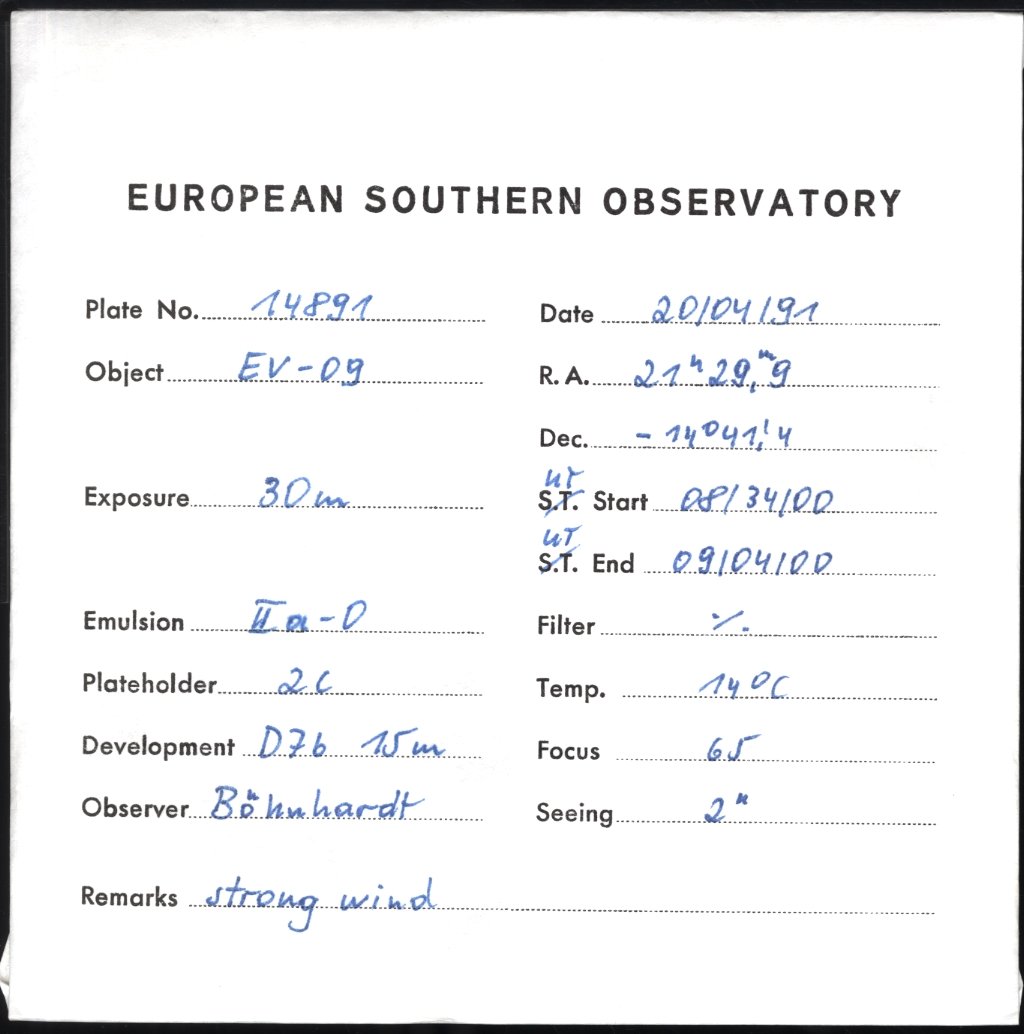 EUROPEAN SOUTHERN OBSERVATORY
Plate No. 14891 Date 20/04/91
Object EV-09 R.A. 21ʰ29,ᵐ9
Dec. -14°41,'4
UT
Exposure 30m S.T. Start 08/34/00
UT
S.T. End 09/04/00
Emulsion IIa-D Filter ./.
Plateholder 2C Temp. 14°C
Development D76 15m Focus 65
Observer Böhnhardt Seeing 2"
Remarks strong wind